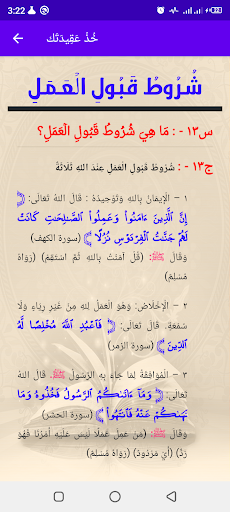 3:22
خُذْ عَقِيدَتَك
شُرُوطُ قَبُولِ الْعَمَلِ
س١٣ - : مَا هِيَ شُرُوطُ قَبُولِ الْعَمَلِ؟
ج١٣ - : شُرُوطُ قَبُولِ العَمَلِ عِنْدَ اللهِ ثَلَاثَةٌ:
١ – الْإِيمَانُ بِاللهِ وَتَوْحِيدُهُ : قَالَ اللهُ تَعَالَى:
﴿ إِنَّ ٱلَّذِينَ ءَامَنُوا۟ وَعَمِلُوا۟ ٱلصَّـٰلِحَـٰتِ كَانَتْ
لَهُمْ جَنَّـٰتُ ٱلْفِرْدَوْسِ نُزُلًا ﴾ (سورة الكهف)
وَقَالَ ﷺ: (قُلْ آمَنْتُ بِاللهِ ثُمَّ اسْتَقِمْ) (رَوَاهُ
مُسْلِمٌ)
٢ – الْإِخْلَاصُ: وَهُوَ العَمَلُ لِلهِ مِنْ غَيْرِ رِيَاءٍ وَلَا
سُمْعَةٍ. قَالَ تَعَالَى: ﴿ فَٱعْبُدِ ٱللَّهَ مُخْلِصًا لَّهُ
ٱلدِّينَ ﴾ (سورة الزمر)
٣ – الْمُوَافَقَةُ لِمَا جَاءَ بِهِ الرَّسُولُ ﷺ. قَالَ اللهُ
تَعَالَى: ﴿ وَمَآ ءَاتَىٰكُمُ ٱلرَّسُولُ فَخُذُوهُ وَمَا
نَهَىٰكُمْ عَنْهُ فَٱنتَهُوا۟ ﴾ (سورة الحشر)
وَقَالَ ﷺ: (مَنْ عَمِلَ عَمَلًا لَيْسَ عَلَيْهِ أَمْرُنَا فَهُوَ
رَدٌّ) (أَيْ مَرْدُودٌ) (رَوَاهُ مُسْلِمٌ)